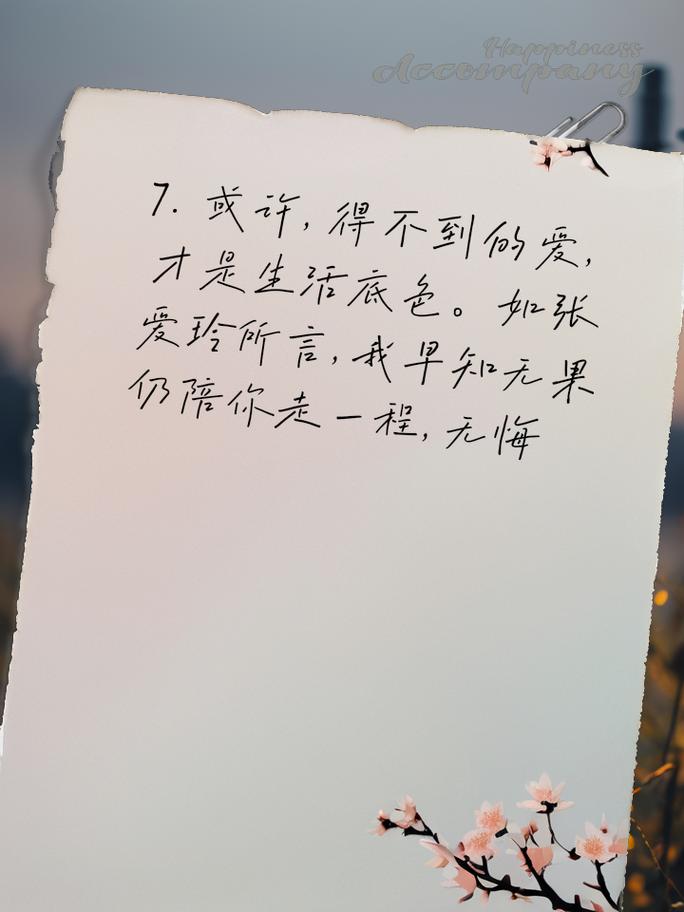 Happiness
Accompany
7. 或许，得不到的爱，
才是生活底色。如张
爱玲所言，我早知无果
仍陪你走一程，无悔